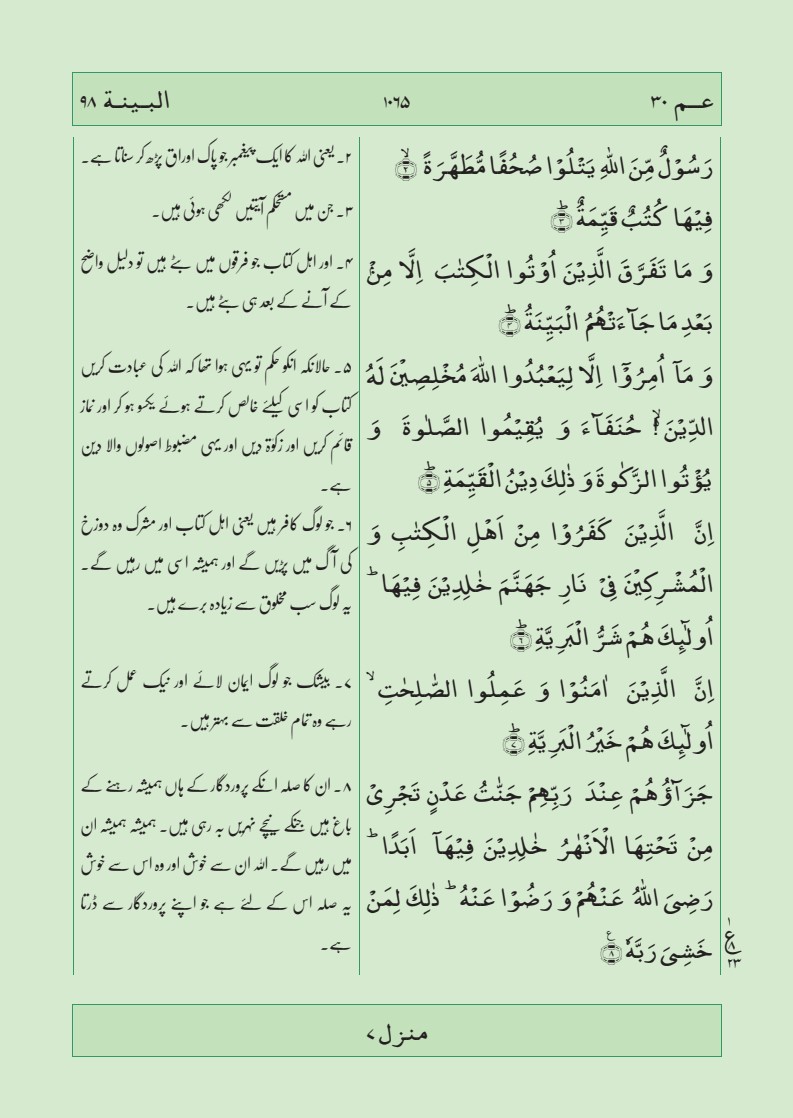 عـــم ۳۰
۱۰۶۵
البـيـنـة ۹۸
رَسُوۡلٌ مِّنَ اللّٰهِ يَتۡلُوۡا صُحُفًا مُّطَهَّرَةً ۙ‏﴿۲﴾
فِيۡهَا كُتُبٌ قَيِّمَةٌ ؕ‏﴿۳﴾
وَ مَا تَفَرَّقَ الَّذِيۡنَ اُوۡتُوا الۡكِتٰبَ اِلَّا مِنۡۢ
بَعۡدِ مَا جَآءَتۡهُمُ الۡبَيِّنَةُ ؕ‏﴿۴﴾
وَ مَاۤ اُمِرُوۡۤا اِلَّا لِيَعۡبُدُوا اللّٰهَ مُخۡلِصِيۡنَ لَهُ
الدِّيۡنَ ۙ۬ حُنَفَآءَ وَ يُقِيۡمُوا الصَّلٰوةَ وَ
يُؤۡتُوا الزَّكٰوةَ وَ ذٰلِكَ دِيۡنُ الۡقَيِّمَةِ ؕ‏﴿۵﴾
اِنَّ الَّذِيۡنَ كَفَرُوۡا مِنۡ اَهۡلِ الۡكِتٰبِ وَ
الۡمُشۡرِكِيۡنَ فِىۡ نَارِ جَهَنَّمَ خٰلِدِيۡنَ فِيۡهَا ؕ
اُولٰٓئِكَ هُمۡ شَرُّ الۡبَرِيَّةِ ؕ‏﴿۶﴾
اِنَّ الَّذِيۡنَ اٰمَنُوۡا وَ عَمِلُوا الصّٰلِحٰتِ ۙ
اُولٰٓئِكَ هُمۡ خَيۡرُ الۡبَرِيَّةِ ؕ‏﴿۷﴾
جَزَآؤُهُمۡ عِنۡدَ رَبِّهِمۡ جَنّٰتُ عَدۡنٍ تَجۡرِىۡ
مِنۡ تَحۡتِهَا الۡاَنۡهٰرُ خٰلِدِيۡنَ فِيۡهَاۤ اَبَدًا ؕ
رَضِىَ اللّٰهُ عَنۡهُمۡ وَ رَضُوۡا عَنۡهُ ؕ ذٰلِكَ لِمَنۡ
خَشِىَ رَبَّهٗ ﴿۸﴾ ع
ع ۸ ۲۳
۲۔ یعنی اللہ کا ایک پیغمبر جو پاک اوراق پڑھ کر سناتا ہے۔
۳۔ جن میں مستحکم آیتیں لکھی ہوئی ہیں۔
۴۔ اور اہل کتاب جو فرقوں میں بٹے ہیں تو دلیل واضح
کے آنے کے بعد ہی بٹے ہیں۔
۵۔ حالانکہ انکو حکم تو یہی ہوا تھا کہ اللہ کی عبادت کریں
کتاب کو اسی کیلئے خالص کرتے ہوئے یکسو ہو کر اور نماز
قائم کریں اور زکوٰۃ دیں اور یہی مضبوط اصولوں والا دین
ہے۔
۶۔ جو لوگ کافر ہیں یعنی اہل کتاب اور مشرک وہ دوزخ
کی آگ میں پڑیں گے اور ہمیشہ اسی میں رہیں گے۔
یہ لوگ سب مخلوق سے زیادہ برے ہیں۔
۷۔ بیشک جو لوگ ایمان لائے اور نیک عمل کرتے
رہے وہ تمام خلقت سے بہتر ہیں۔
۸۔ ان کا صلہ انکے پروردگار کے ہاں ہمیشہ رہنے کے
باغ ہیں جنکے نیچے نہریں بہ رہی ہیں۔ ہمیشہ ہمیشہ ان
میں رہیں گے۔ اللہ ان سے خوش اور وہ اس سے خوش
یہ صلہ اس کے لئے ہے جو اپنے پروردگار سے ڈرتا
ہے۔
منزل ۷